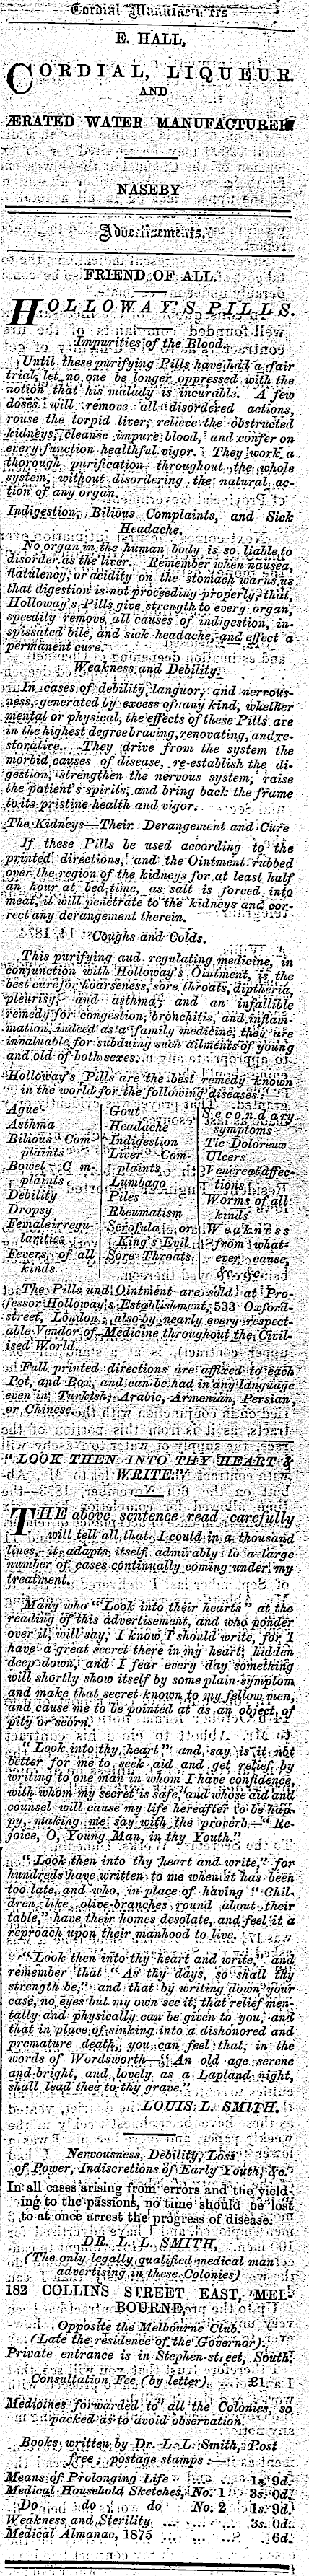 Cordial Manufacturers
E. HALL,
CORDIAL, LIQUEUR.
AND
ÆRATED WATER MANUFACTURER
NASEBY
Advertisements.
FRIEND OF ALL.
HOLLOWAY'S PILLS.
Impurities of the Blood.
Until these purifying Pills have had a fair
trial, let no one be longer oppressed with the
notion that his malady is incurable. A few
doses will remove all disordered actions,
rouse the torpid liver, relieve the obstructed
kidneys, cleanse impure blood, and confer on
every function healthful vigor. They work a
thorough purification throughout the whole
system, without disordering the natural ac-
tion of any organ.
Indigestion, Bilious Complaints, and Sick
Headache.
No organ in the human body is so liable to
disorder as the liver. Remember when nausea,
flatulency, or acidity on the stomach warns us
that digestion is not proceeding properly, that,
Holloway's Pills give strength to every organ,
speedily remove all causes of indigestion, in-
spissated bile, and sick headache, and effect a
permanent cure.
Weakness and Debility.
In cases of debility, languor, and nervous-
ness, generated by excess of any kind, whether
mental or physical, the effects of these Pills are
in the highest degree bracing, renovating, and re-
storative. They drive from the system the
morbid causes of disease, re-establish the di-
gestion, strengthen the nervous system, raise
the patient's spirits, and bring back the frame
to its pristine health and vigor.
The Kidneys—Their Derangement and Cure
If these Pills be used according to the
printed directions, and the Ointment rubbed
over the region of the kidneys for at least half
an hour at bed-time, as salt is forced into
meat, it will penetrate to the kidneys and cor-
rect any derangement therein.
Coughs and Colds.
This purifying and regulating medicine, in
conjunction with Holloway's Ointment, is the
best cure for hoarseness, sore throats, diptheria,
pleurisy, and asthma, and an infallible
remedy for congestion, bronchitis, and inflam-
mation, indeed as a family medicine, they are
invaluable for subduing such ailments of young
and old of both sexes.
Holloway's Pills are the best remedy known
in the world for the following diseases:—
Ague
Asthma
Bilious Com-
plaints
Bowel C m-
plaints
Debility
Dropsy
Female irregu-
larities
Fevers of all
kinds
Gout
Headache
Indigestion
Liver Com-
plaints
Lumbago
Piles
Rheumatism
Scrofula, or
King's Evil
Sore Throats
Secondary
symptoms
Tic Doloreux
Ulcers
Venereal affec-
tions
Worms of all
kinds
Weakness
from what-
ever cause,
&c., &c.
The Pills and Ointment are sold at Pro-
fessor Holloway's Establishment, 533 Oxford-
street, London, also by nearly every respect-
able Vendor of Medicine throughout the Civil-
ised World.
Full printed directions are affixed to each
Pot, and Box, and can be had in any language
even in Turkish, Arabic, Armenian, Persian,
or Chinese.
"LOOK THEN INTO THY HEART &
WRITE."
THE above sentence read carefully
will tell all that I could in a thousand
lines, it adapts itself admirably to a large
number of cases continually coming under my
treatment.
Many who "Look into their hearts" at the
reading of this advertisement, and who ponder
over it, will say, I know I should write, for I
have a great secret there in my heart, hidden
deep down, and I fear every day something
will shortly show itself by some plain symptom
and make that secret known to my fellow men,
and cause me to be pointed at as an object of
pity or scorn.
"Look into thy heart" and say is it not
better for me to seek aid and get relief by
writing to one man in whom I have confidence,
with whom my secret is safe, and whose aid and
counsel will cause my life hereafter to be hap-
py, making me say with the proverb—"Re-
joice, O, Young Man, in thy Youth."
"Look then into thy heart and write," for
hundreds have written to me when it has been
too late, and who, in place of having "Chil-
dren like olive-branches round about their
table," have their homes desolate, and feel it a
reproach upon their manhood to live.
"Look then into thy heart and write," and
remember that "As thy days, so shall thy
strength be," and that by writing down your
case, no eyes but my own see it, that relief men-
tally and physically can be given to you, and
that in place of sinking into a dishonored and
premature death, you can feel that, in the
words of Wordsworth—"An old age serene
and bright, and lovely as a Lapland night,
shall lead thee to thy grave."
LOUIS L. SMITH.
Nervousness, Debility, Loss
of Power, Indiscretions of Early Youth, &c.
In all cases arising from errors and the yield-
ing to the passions, no time should be lost
to at once arrest the progress of disease.
DR. L. L. SMITH,
(The only legally qualified medical man
advertising in these Colonies)
182 COLLINS STREET EAST, MEL-
BOURNE,
Opposite the Melbourne Club.
(Late the residence of the Governor).
Private entrance is in Stephen-street, South.
Consultation Fee (by letter), £1.
Medicines forwarded to all the Colonies so
packed as to avoid observation.
Books written by Dr. L. L. Smith, Post
free, postage stamps:—
Means of Prolonging Life ... 1s. 9d.
Medical Household Sketches, No. 1 3s. 0d.
Do do do No. 2, 1s. 9d.
Weakness and Sterility ... ... 3s. 0d.
Medical Almanac, 1875 ... ... 6d.